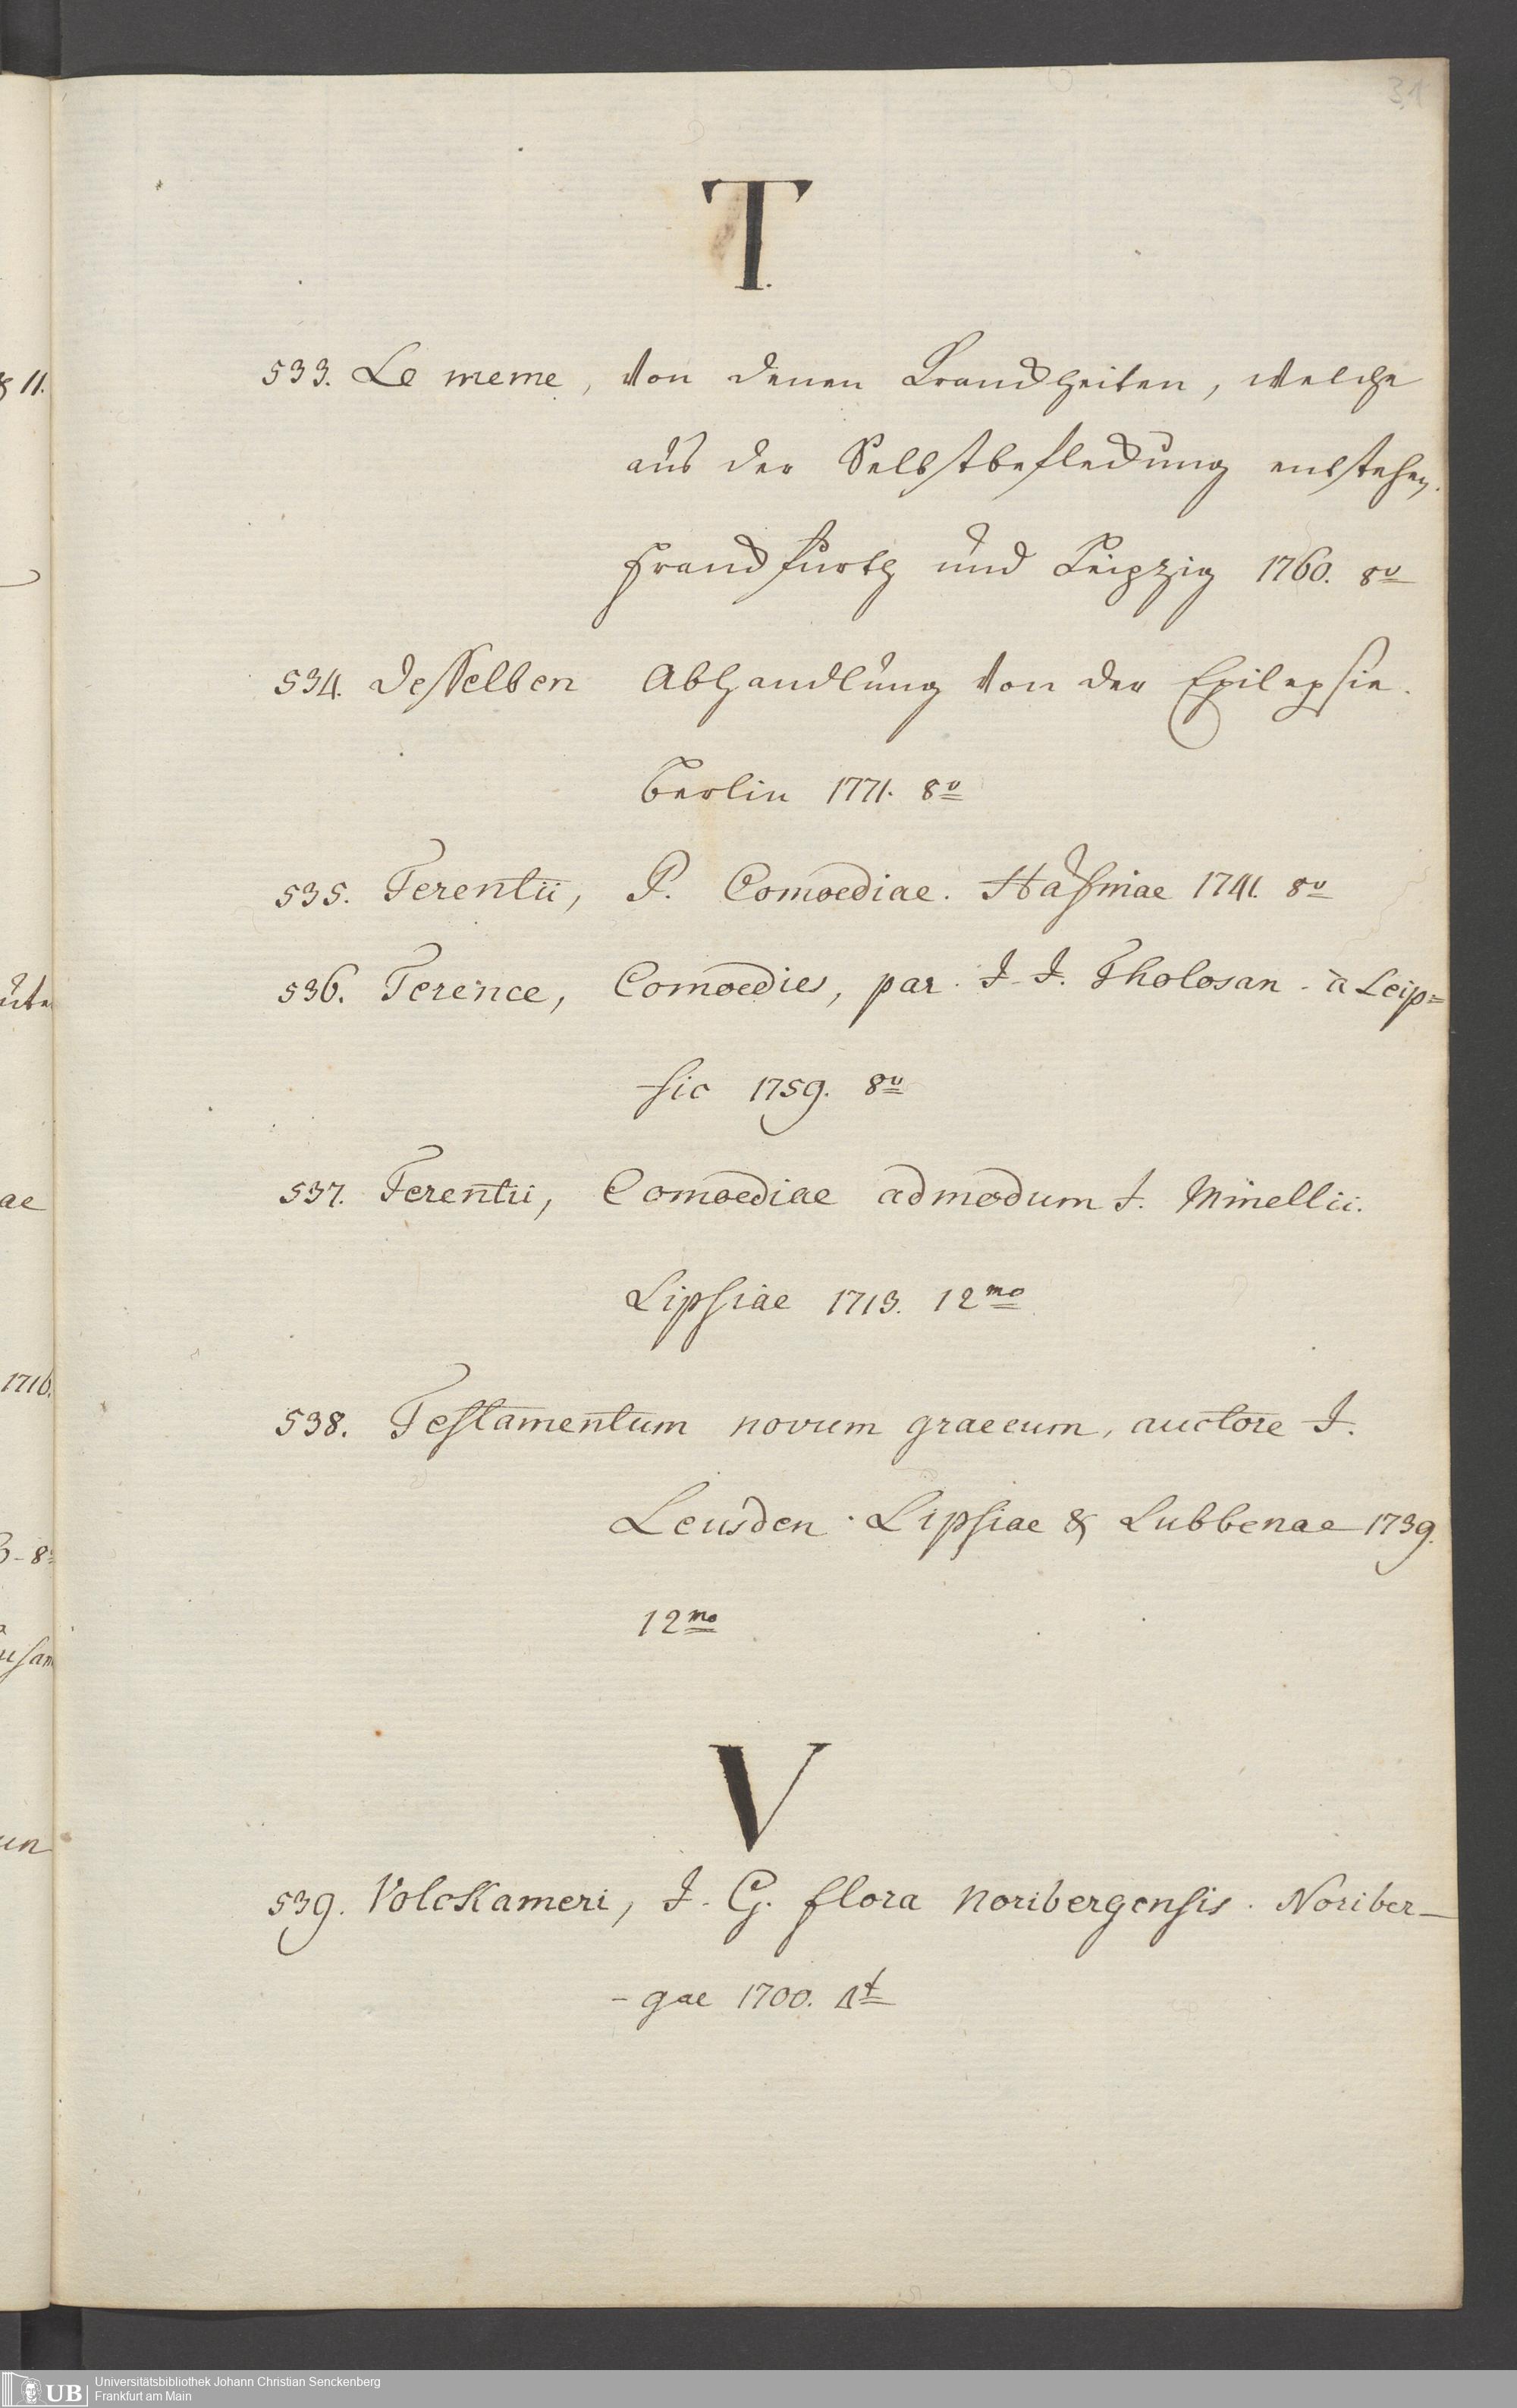 31
T.
533. Le meme, von denen Kranckheiten, welche
aus der Selbstbefleckung entstehen.
Franckfurth und Leipzig 1760. 8º
534. Desselben Abhandlung von der Epilepsie.
Berlin 1771. 8º
535. Terentii, P. Comoediae. Hafniae 1741. 8º
536. Terence, Comoedies, par J. J. Tholosan. à Leip=
-sic 1759. 8º
537. Terentii, Comoediae admodum J. Minellii.
Lipsiae 1713. 12mo
538. Testamentum novum graecum, auctore J.
Leusden. Lipsiae & Lubbenae 1739.
12mo
V
539. Volckameri, J. G. flora noribergensis. Noriber-
-gae 1700. 4t
& 11.
ae
1716.
un
UB Universitätsbibliothek Johann Christian Senckenberg
Frankfurt am Main